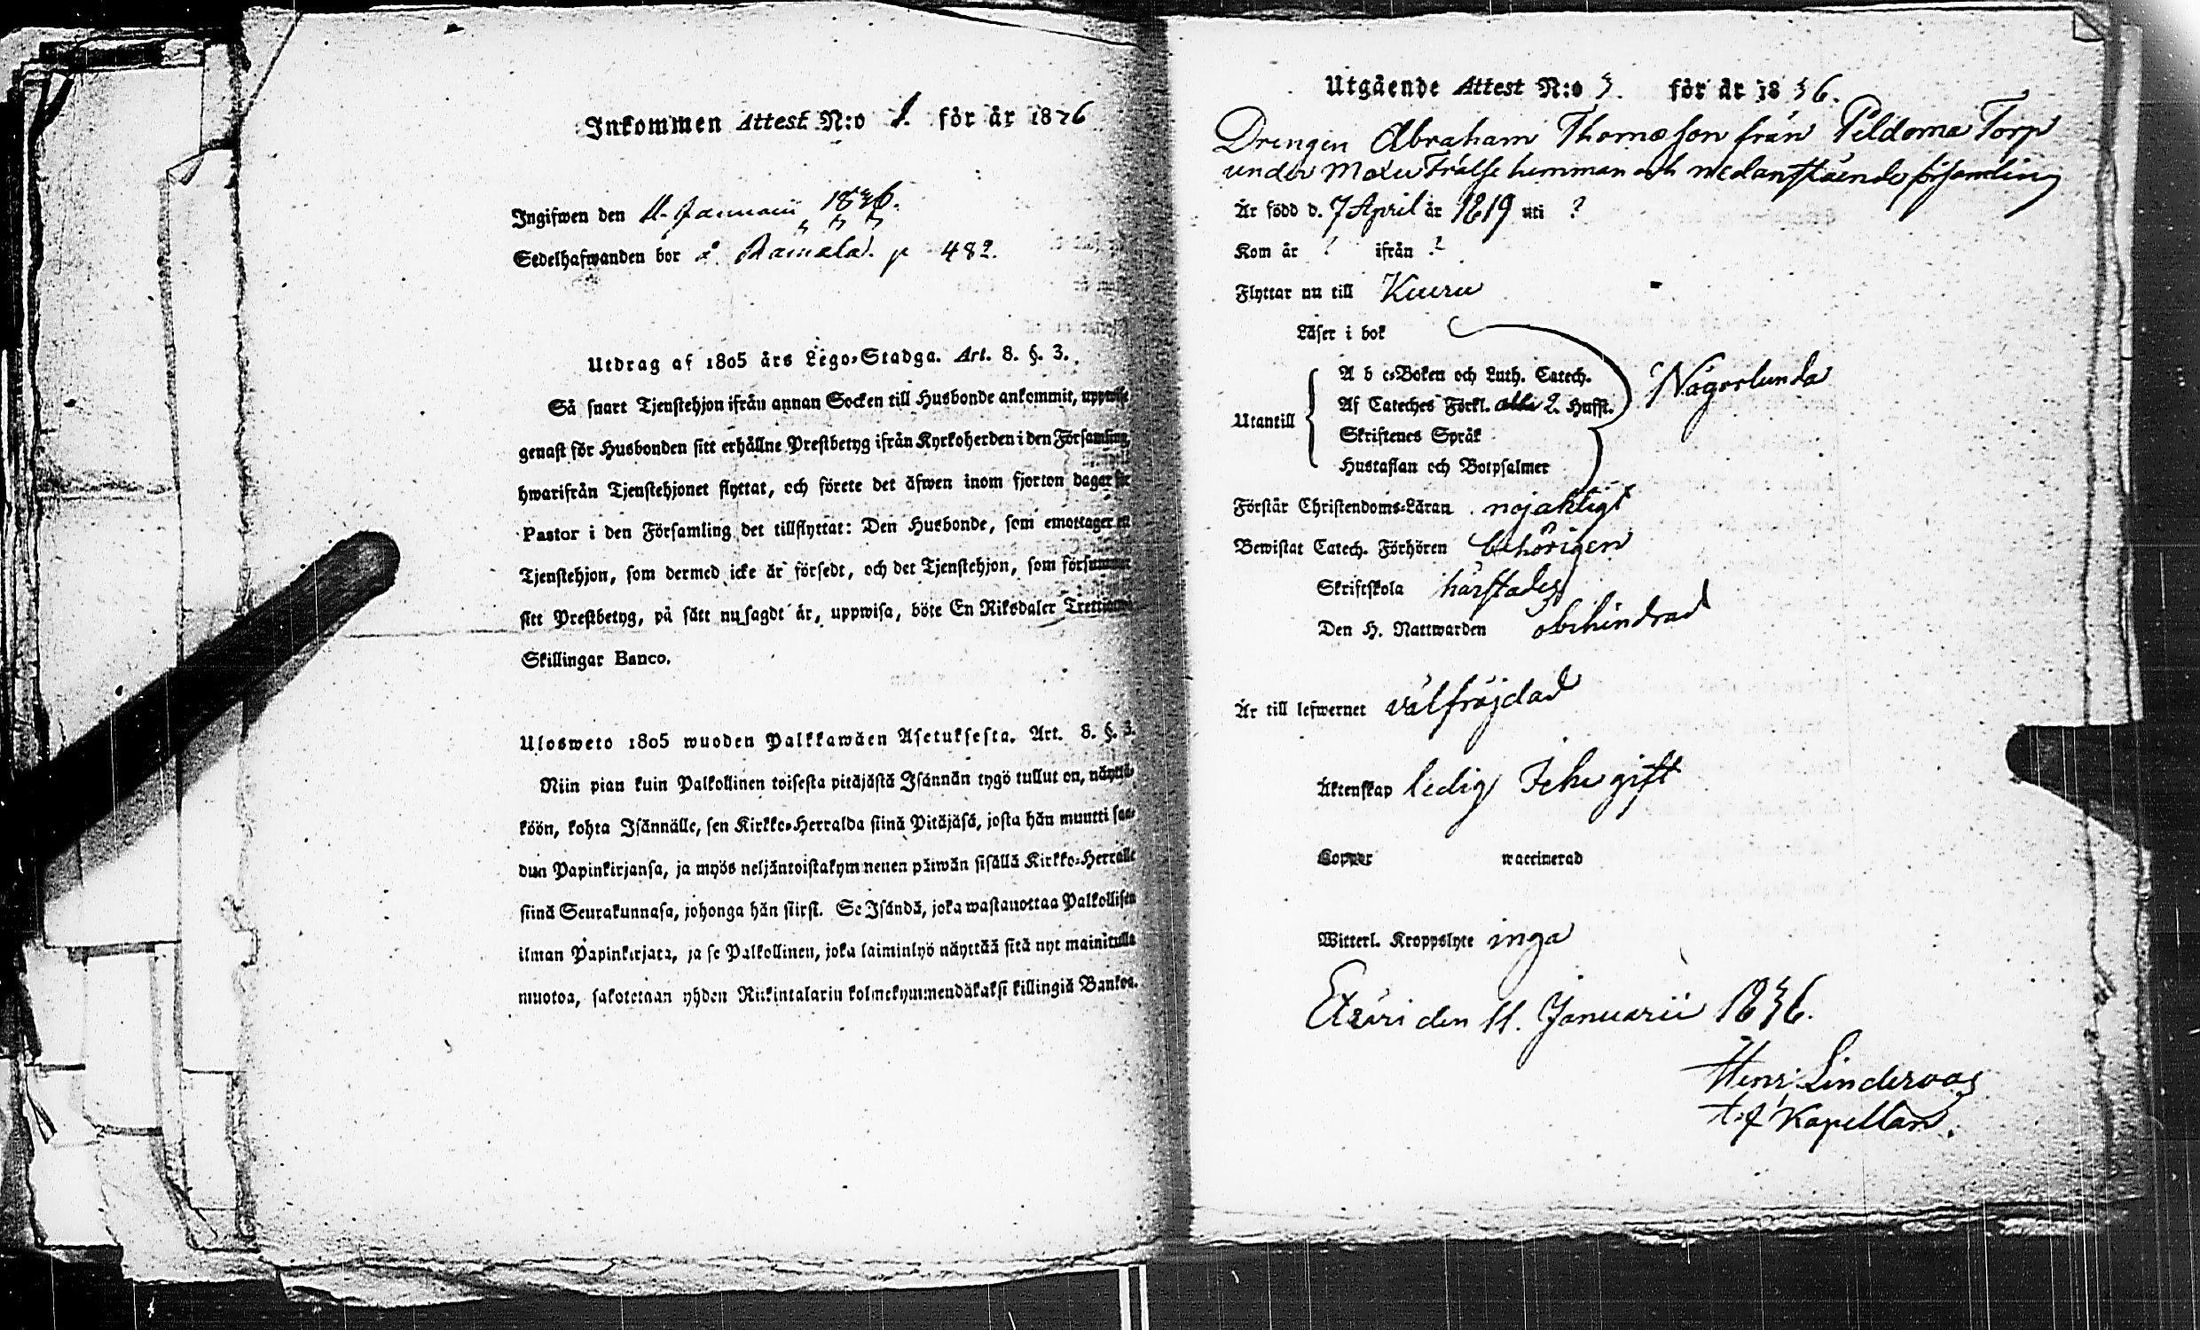 Inkommen Attest N:o 1. för år 1836
Ingifwen den 11. Januarii 1836.
Sedelhafwanden bor å p 482.
Utdrag af 1805 års Lego-Stadga. Art. 8. §. 3.
Så snart Tjenstehjon ifrån annan Socken till Husbonde ankommit, uppwise
genast för Husbonden sitt erhållne Prestbetyg ifrån Kyrkoherden i den Församling,
hwarifrån Tjenstehjonet flyttat, och förete det äfwen inom fjorton dagar för
Pastor i den Församling det tillflyttat: Den Husbonde, som emottager en
Tjenstehjon, som dermed icke är försedt, och det Tjenstehjon, som försummar
sitt Prestbetyg, på sätt nu sagdt är, uppwisa, böte En Riksdaler
Skillingar Banco.
Ulosweto 1805 wuoden Palkkawäen Asetuksesta. Art. 8. §. 3.
Niin pian kuin Palkollinen toisesta pitäjästä Isännän tygö tullut on, näyttä-
köön, kohta Isännälle, sen Kirkko-Herralda siinä Pitäjäsä, josta hän muutti saa-
dun Papinkirjansa, ja myös neljäntoistakymmenen päiwän sisällä Kirkko-Herralle
siinä Seurakunnasa, johonga hän siirst. Se Isändä, joka wastanottaa Palkollisen
ilman Papinkirjata, ja se Palkollinen, joka laiminlyö näyttää sitä nyt mainitulla
muotoa, sakotetaan yhden Riikintalarin kolmekymmendäkaksi killingiä Bankoa.
Utgående Attest N:o 3. för år 1836.
Drengen Abraham Thomasson från Peldoma Torp
under Frälse hemman och nedanstående församling
Är född d. 7 April år 1819 uti ?
Kom år ? ifrån ?
Flyttar nu till Kuru
Läser i bok
A b c-Boken och Luth. Catech.
Någorlunda
Af Cateches Förkl. alla 2. Hufst.
Utantill
Skriftenes Språk
Hustaflan och Botpsalmer
Förstår Christendoms-Läran nöjaktigt
Bewistat Catech. Förhören behörigen
Skriftskola härstädes
Den H. Nattwarden obehindrad
Är till lefwernet välfräjdad
Äktenskap ledig Icke gift
Koppor waccinerad
Witterl. Kroppslyte inga
Etseri den 11. Januarii 1836.
Henr Lindervas
t.f Kapellan.